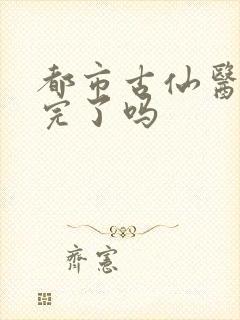 都市古仙醫
完了吗
齊憲